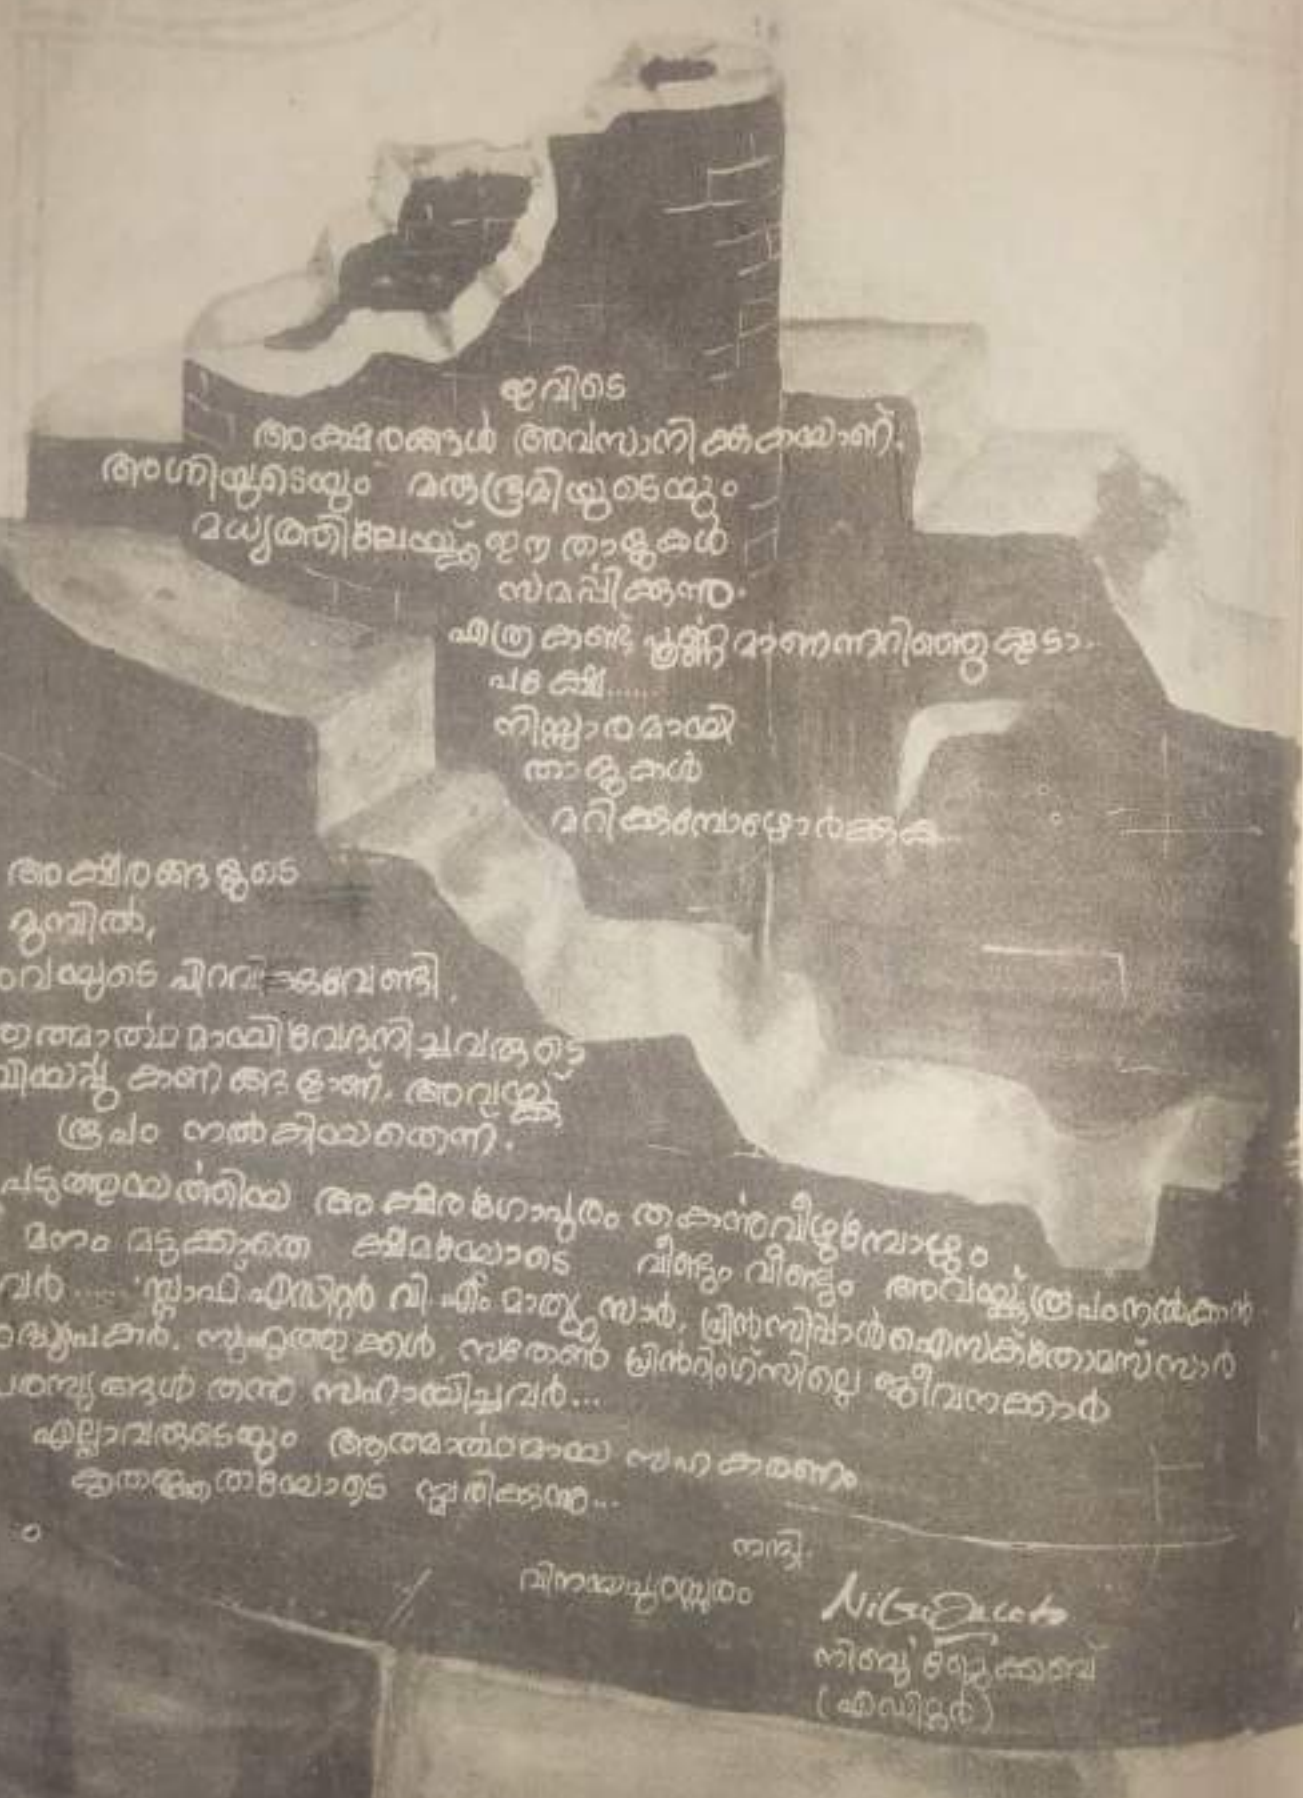 ഇവിടെ
അക്ഷരങ്ങൾ അവസാനിക്കുകയാണ്.
അഗ്നിയുടെയും മരുഭൂമിയുടെയും
മധ്യത്തിലേയ്ക്ക് ഈ താളുകൾ
സമർപ്പിക്കുന്നു.
എത്ര കണ്ട് പൂർണ്ണമാണന്നറിഞ്ഞുകൂടാ..
പക്ഷേ.....
നിസ്സാരമായി
താളുകൾ
മറിക്കുമ്പോഴോർക്കുക
അക്ഷരങ്ങളുടെ
മുമ്പിൽ,
പിറവിക്കുവേണ്ടി,
വേദനിച്ചവരുടെ
വിയർപ്പു കണങ്ങളാണ്. അവയ്ക്ക്
രൂപം നൽകിയതെന്ന്.
അക്ഷരഗോപുരം തകർന്നുവീഴുമ്പോഴും
മനം മടുക്കാതെ ക്ഷമയോടെ വീണ്ടും വീണ്ടും അവയ്ക്കു രൂപം നൽകാൻ
സ്റ്റാഫ് എഡിറ്റർ വി. എം. മാത്യു സാർ, പ്രിൻസിപ്പാൾ ഐസക് തോമസ് സാർ
സുഹൃത്തുക്കൾ, സതേൺ പ്രിൻറിംഗ്സിലെ ജീവനക്കാർ
തന്നു സഹായിച്ചവർ...
എല്ലാവരുടെയും ആത്മാർത്ഥമായ സഹകരണം
കൃതജ്ഞതയോടെ സ്മരിക്കുന്നു...
നന്ദി.
വിനയപുരസ്സരം
നിബു ജേക്കബ്
(എഡിറ്റർ)